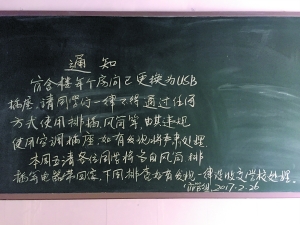 通知
宿舍楼每个房间已更换为USB
插座,请同学们一律不得通过任何
方式使用排插,风筒等,尤其违规
使用空调插座,如有发现将严肃处理.
本周五请各位同学将各自风筒排
插等电器带回家,下周排查如有发现一律没收交学校处理.
宿管组.2017.2.26